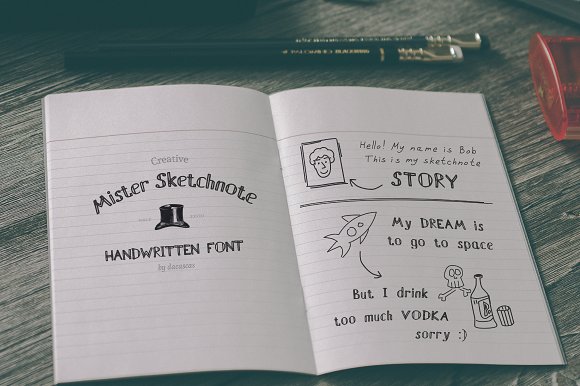 Creative
Mister Sketchnote
HANDWRITTEN FONT
by dacascas
Hello! My name is Bob
This is my sketchnote
STORY
My DREAM is
to go to space
But I drink
too much VODKA
sorry :)